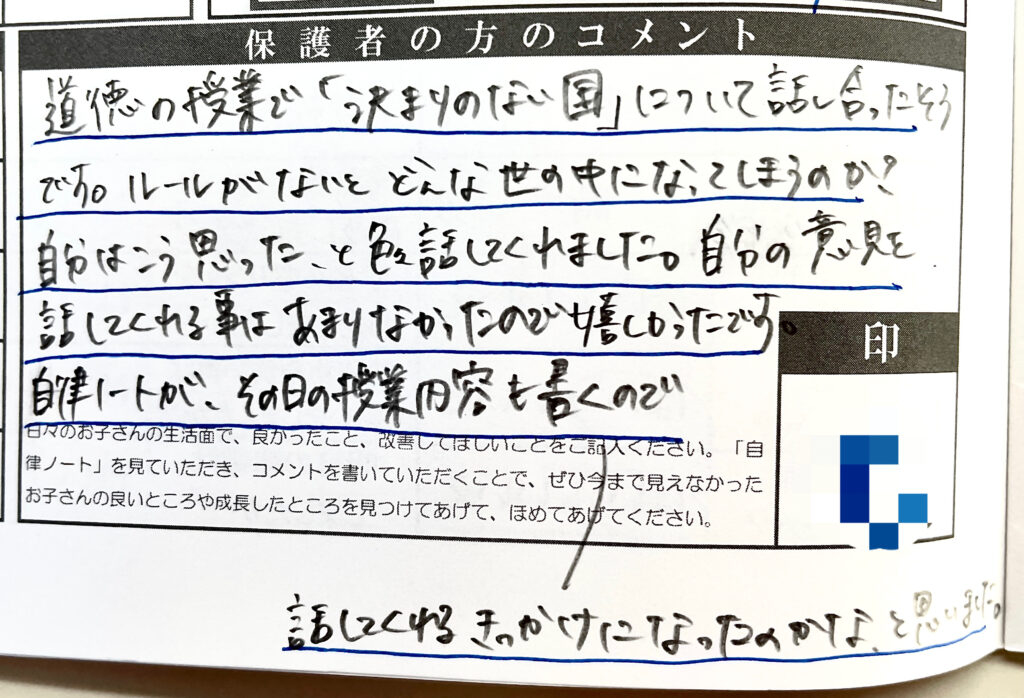 保護者の方のコメント
道徳の授業で「決まりのない国」について話し合ったそう
です。ルールがないと どんな世の中になってしまうのか?
自分はこう思った、と色々話してくれました。自分の意見を
話してくれる事はあまりなかったので嬉しかったです。
印
自律ノートが、その日の授業内容も書くので
日々のお子さんの生活面で、良かったこと、改善してほしいことをご記入ください。「自
律ノート」を見ていただき、コメントを書いていただくことで、ぜひ今まで見えなかった
お子さんの良いところや成長したところを見つけてあげて、ほめてあげてください。
話してくれる きっかけになったのかな、と思いました。